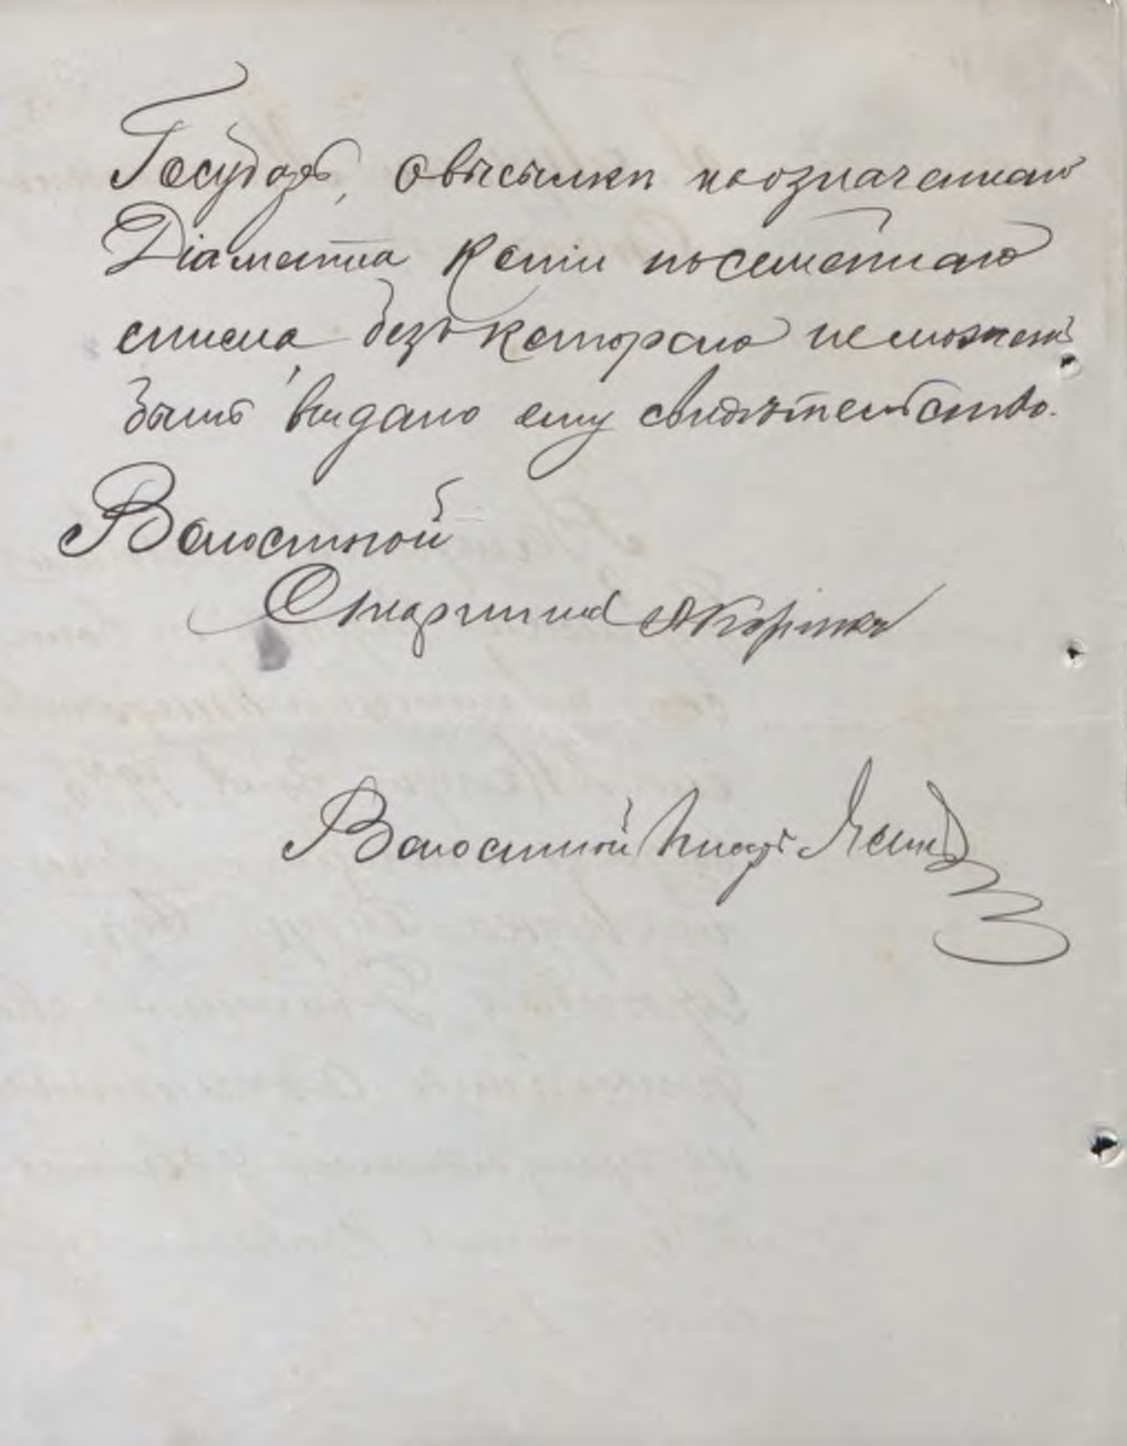 Государь, о высылки поозначенаго
Діамента Копіи посемейнаго
списка, безъ котораго неможетъ
быть выдано ему свидѣтельство.
Волостной
Старшина
Волостной Писарь